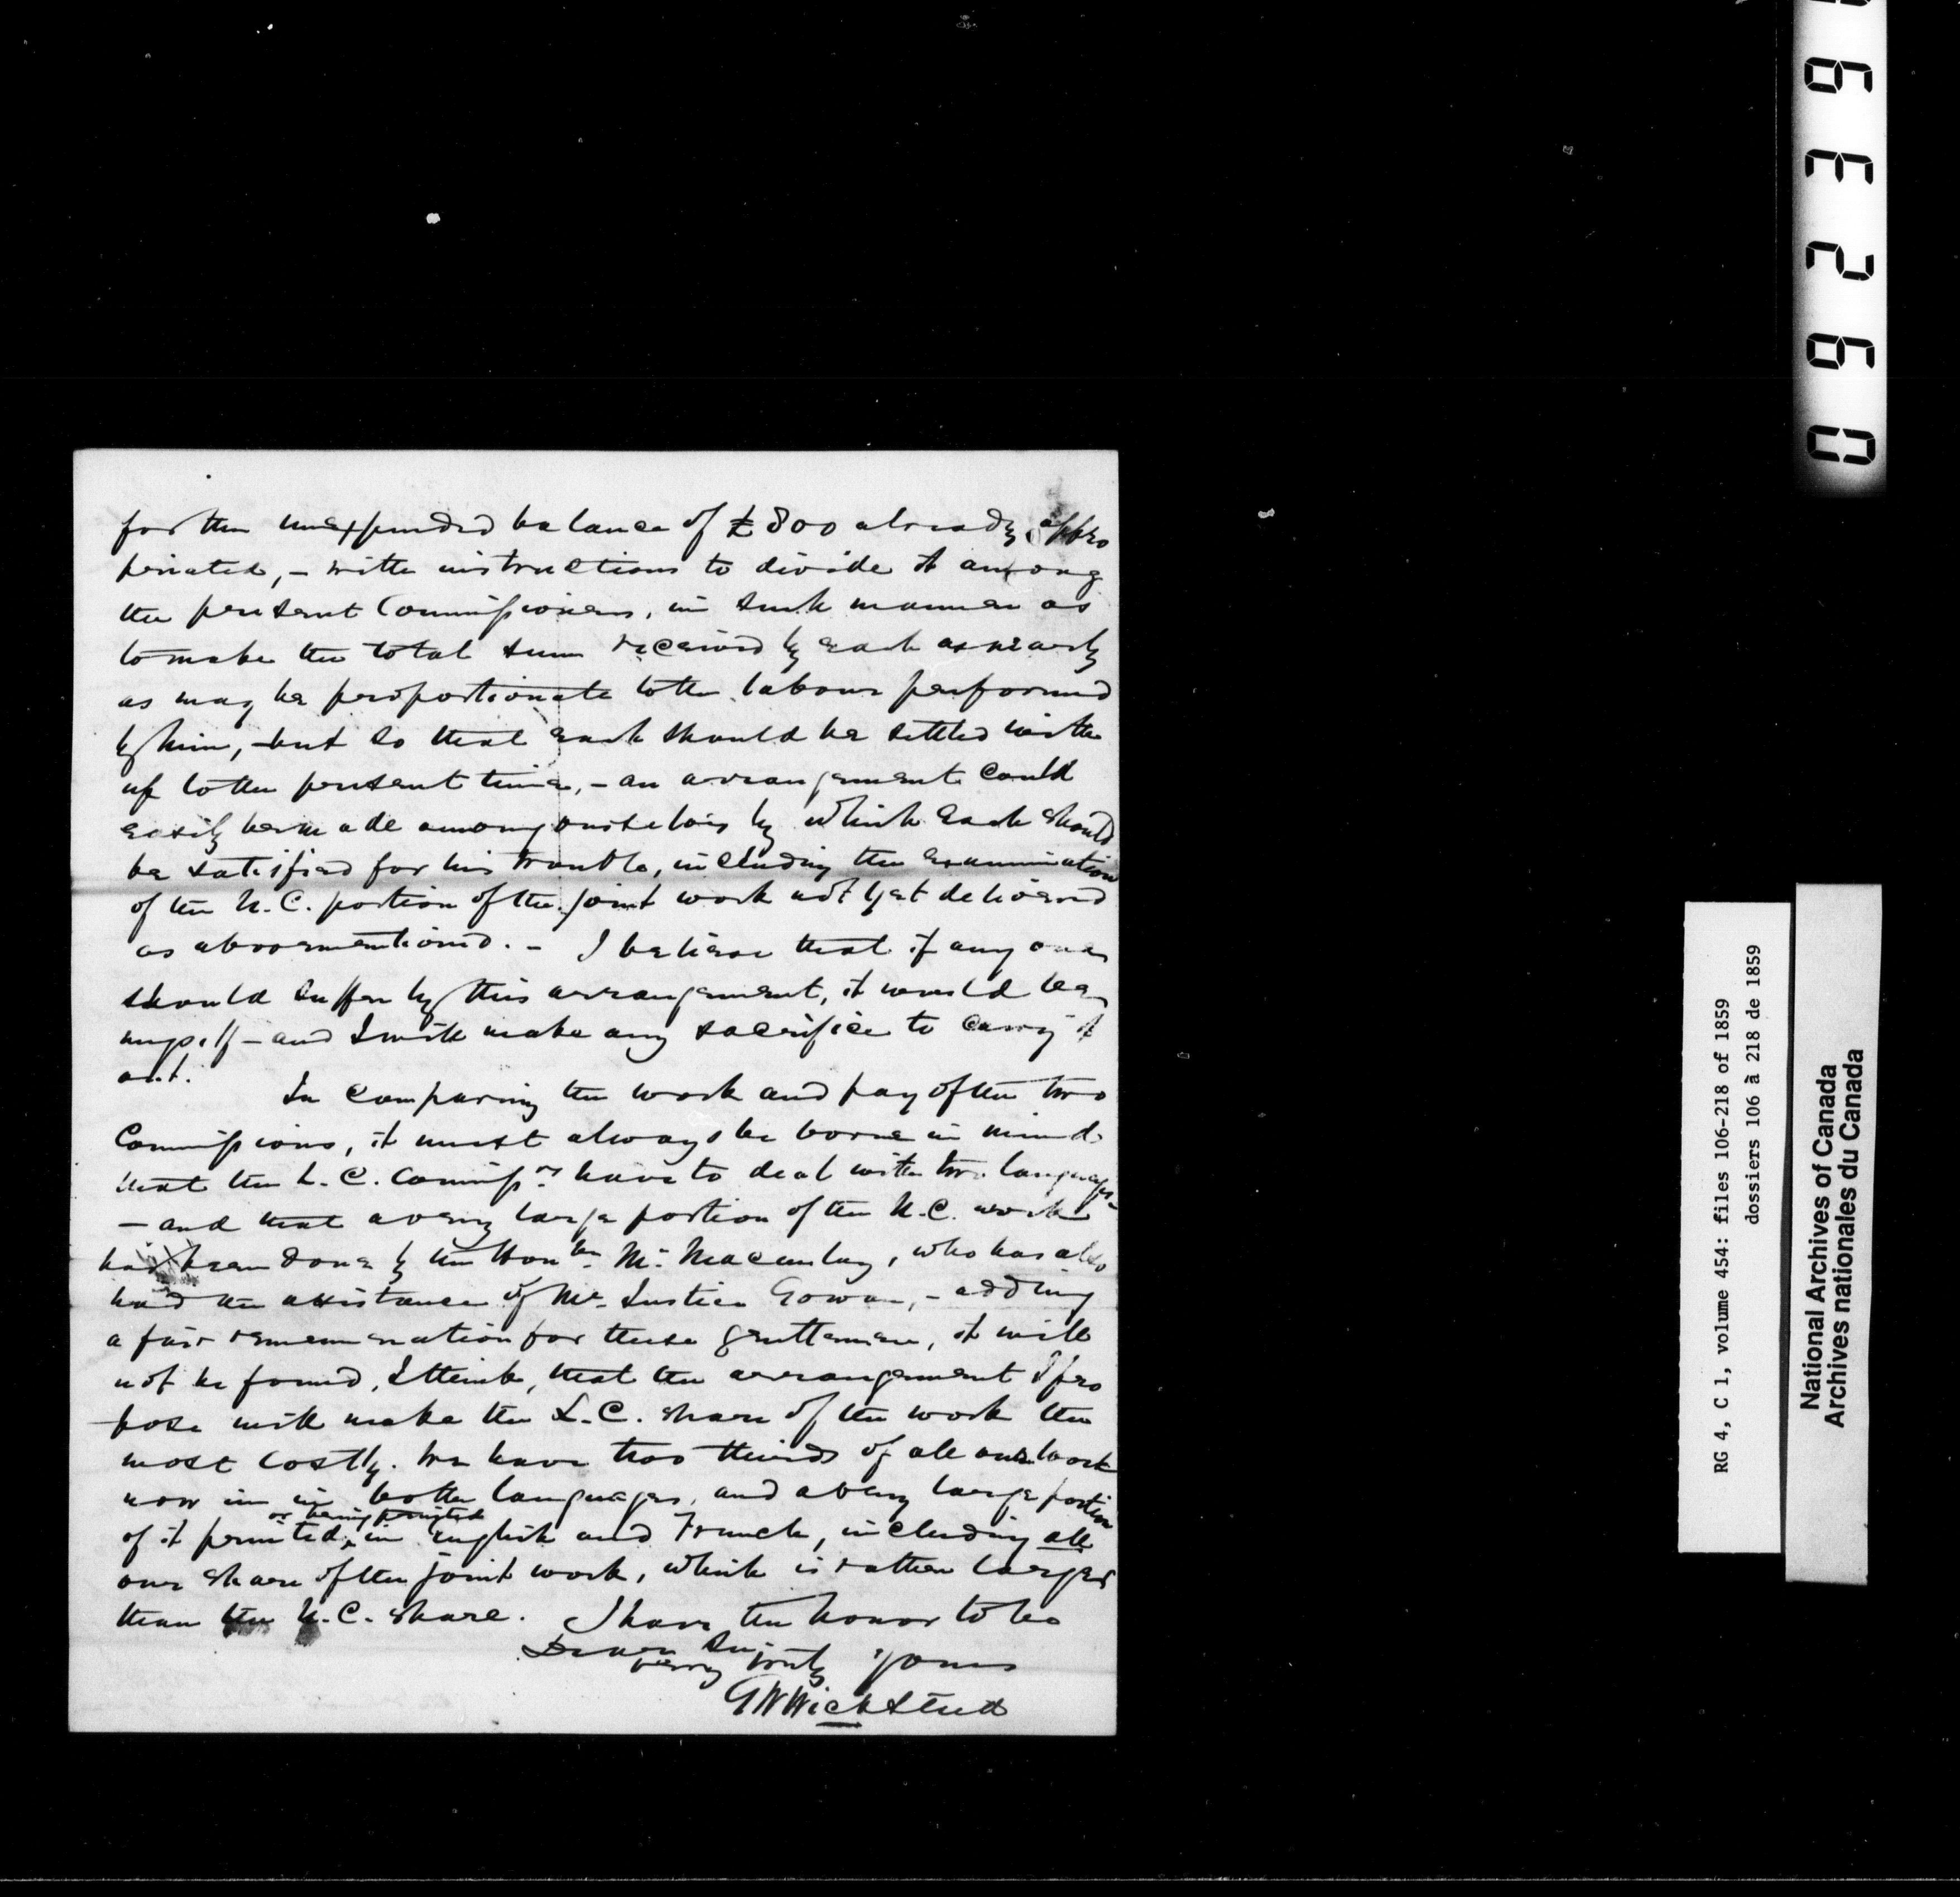 for the unexpended balance of £800 already appro
priated, – with instructions to divide it among
the present Commissioners, in such manner as
to make the total sum received by each as nearly
as may be proportionate to the labour performed
by him, – but so that each should be settled with
up to the present time, – an arrangement could
easily be made among ourselves by which each should
be satisfied for his trouble, including the examination
of the U.C. portion of the joint work not yet delivered
as abovementioned. – I believe that if any one
should suffer by this arrangement, it would be
myself – and I will make any sacrifice to carry it
out.
In comparing the work and pay of the two
Commissions, it must always be borne in mind
that the L.C. Commissrs have to deal with two languages
– and that a very large portion of the U.C. work
has been done by the Honble Mr. Macaulay, who has also
had the assistance of Mr. Justice Gowan, – adding
a fair remuneration for these gentlemen, it will
not be found, I think, that the arrangement I pro
pose will make the L.C. share of the work the
most costly. We have two thirds of all our work
now in in both languages, and a very large portion
or being printed
of it printed, in English and French, including all
our share of the joint work, which is rather larger
than the U.C. share. I have the honor to be
Dear Sir
very truly yours
G W Wicksteed
0 9 2 3 9
RG 4, C 1, volume 454: files 106-218 of 1859
dossiers 106 à 218 de 1859
National Archives of Canada
Archives nationales du Canada